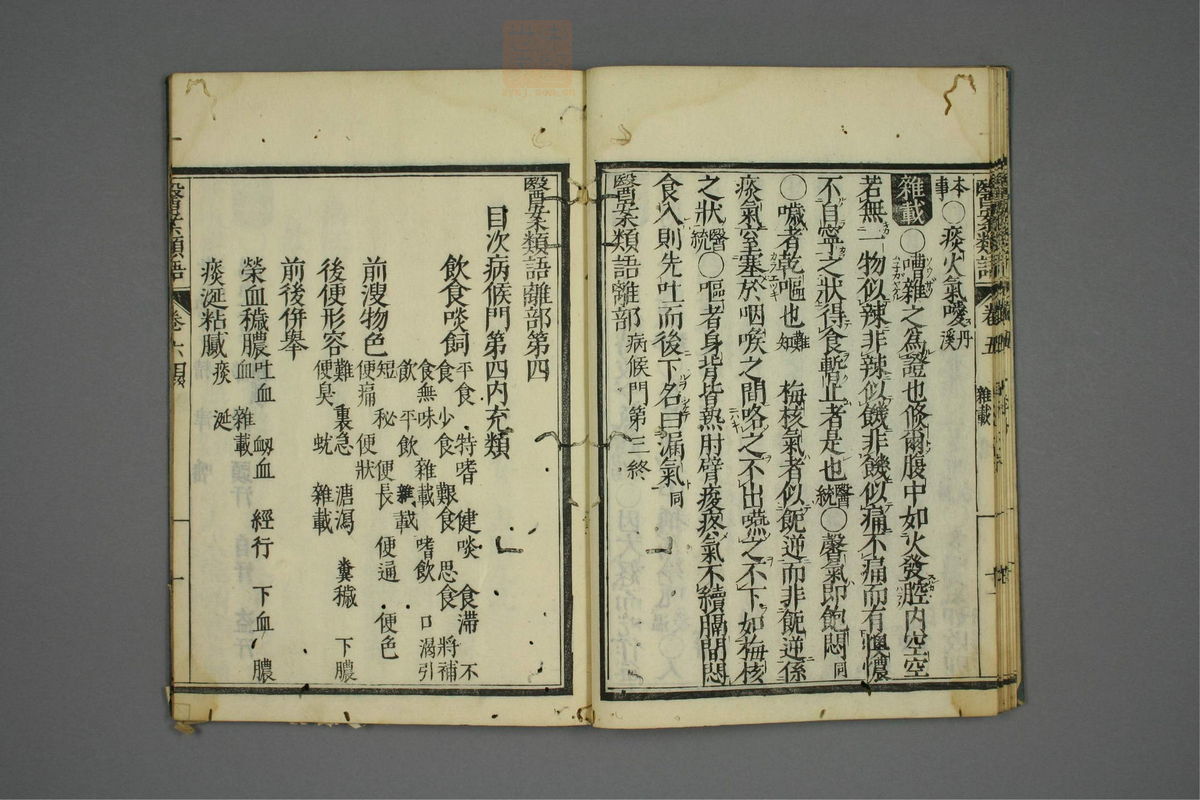 本事〇痰火氣噯丹溪
雜載〇嘈雜之為證也倐爾腹中如火發腔内空空
若無一物似辣非辣似餓非饑似痛不痛而有懊憹
不自寧之狀得食暫止者是也醫統〇馨氣即飽悶同
〇噦者乾嘔也難知 梅核氣者似飥逆而非飥逆係
痰氣窒塞於咽喉之間咯之不出嚥之不下如梅核
之狀醫統〇嘔者身背皆熱肘臂疼氣不續膈間悶
食入則先吐而後下名曰漏氣同
醫案類語離部病候門第三終
醫案類語卷五
雜載
醫案類語離部第四
目次病候門第四内充類
飲食啖飼 平食 特嗜 健啖 食滯 不食 少食 艱食 思食 將補 食無味 雜載 嗜飲 口渴引飲 平飲 雜載
前溲物色 短 秘 便長 便遍 便色 便痛 便狀
後便形容 難 裏急 溏瀉 糞穢 下膿 便臭 蚘 雜載
前後併舉
榮血穢膿 吐血 衂血 經行 下血 膿血 雜載
痰涎粘膩 痰 涎
醫案類語 卷六目